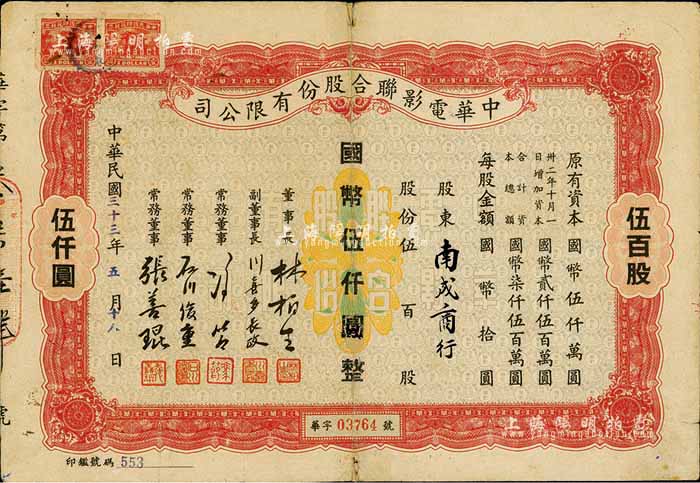 中華電影聯合股份有限公司
原有資本國幣伍仟萬圓
卅二年十月一日增加資本國幣貳仟伍百萬圓
合計資本總額國幣柒仟伍百萬圓
每股金額國幣拾圓
股東南成商行
股份伍百股
國幣伍仟圓整
董事長林柏生
副董事長川喜多長政
常務董事馮節
常務董事石川俊重
常務董事張善琨
中華民國三十三年五月十八日
伍百股
伍仟圓
華字03764號
印鑑號碼553
上海陽明拍賣